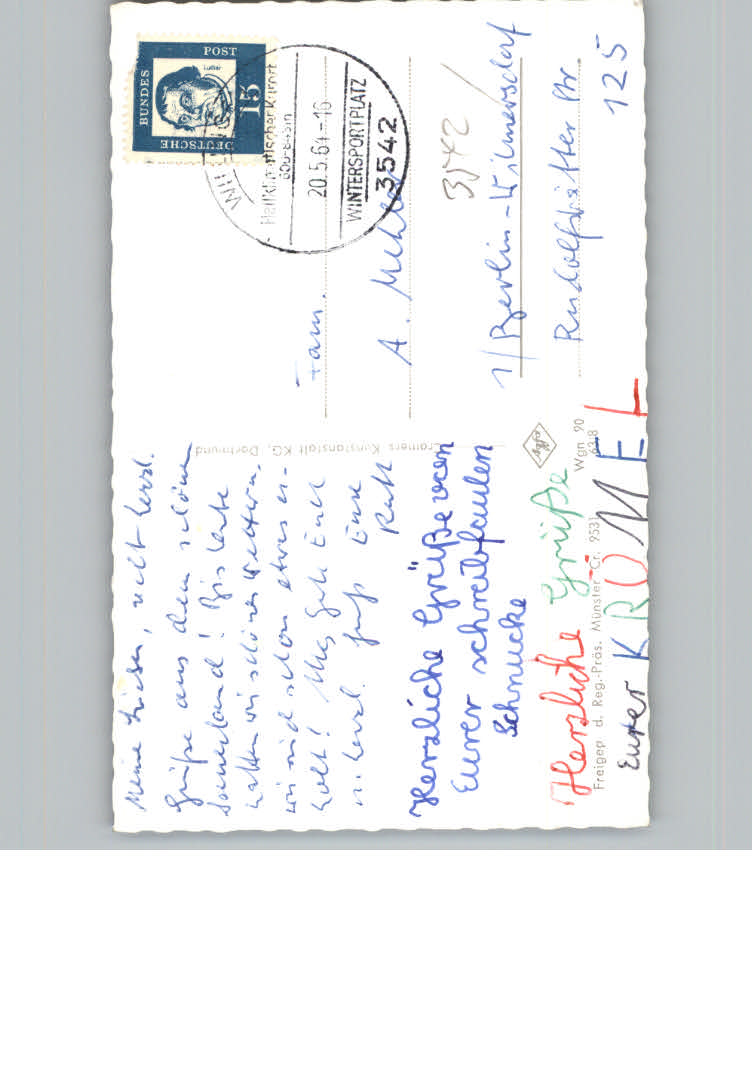 Meine Lieben, recht herzl.
Grüße aus dem schönen
Sauerland! Bis heute
hatten wir schönes Wetter u.
wir sind schon etwas er-
holt! Alles Gute Euch
u. herzl. Grüße Eure
Herzliche Grüße von
Eurer schreibfaulen
Schnucke
Herzliche Grüße
Eurer KRÜMEL
Cramers Kunstanstalt KG, Dortmund
Freigep d. Reg.-Präs. Münster Cr. 9531
Wgn 90
6318
Agfa
DEUTSCHE
BUNDES
POST
Luther
15
Heilklimatischer Kurort
600-843m
20.5.64-16
WINTERSPORTPLATZ
3542
3542
Fam.
A. Mehler
1/Berlin-Wilmersdorf
Rudolfstätter Str
125